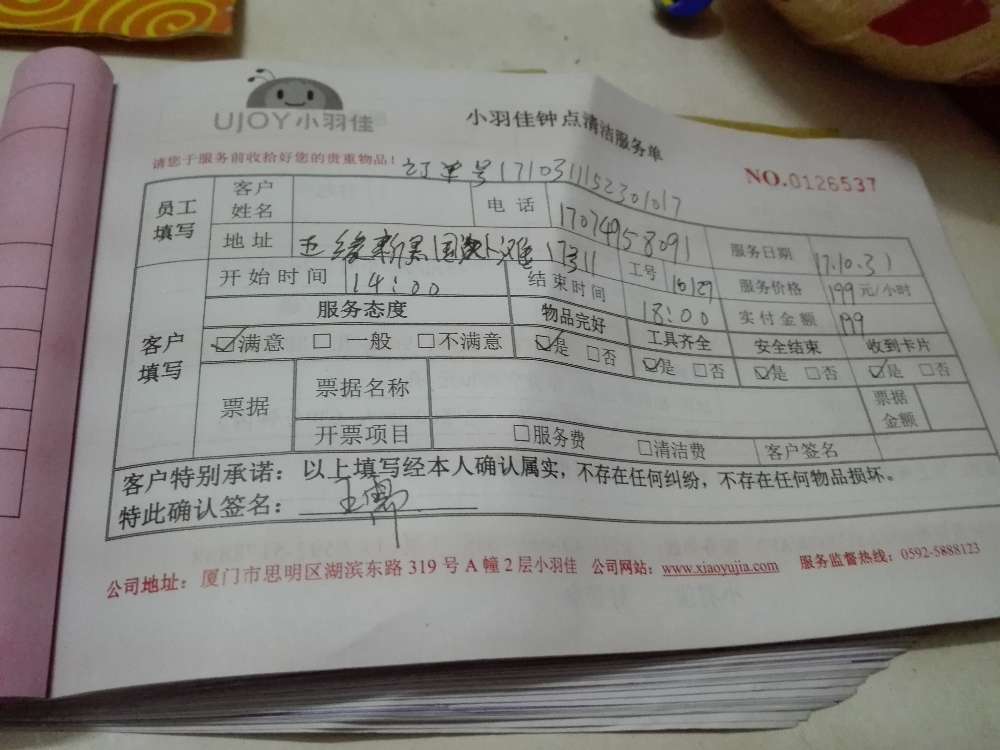 UJOY小羽佳
小羽佳钟点清洁服务单
请您于服务前收拾好您的贵重物品！
订单号171031152301017
NO.0126537
员工填写 客户姓名 电话 17074958091 服务日期 17.10.31
地址 五缘新 国 17311 工号 服务价格 199元/小时
客户填写 开始时间 14:00 结束时间 18:00 实付金额 199
服务态度 物品完好 工具齐全 安全结束 收到卡片
☑满意 □一般 □不满意 ☑是 □否 ☑是 □否 ☑是 □否 ☑是 □否
票据 票据名称 票据金额
开票项目 □服务费 □清洁费 客户签名
客户特别承诺：以上填写经本人确认属实，不存在任何纠纷，不存在任何物品损坏。
特此确认签名：王
公司地址：厦门市思明区湖滨东路 319 号 A 幢 2 层小羽佳 公司网站：www.xiaoyujia.com 服务监督热线：0592-5888123